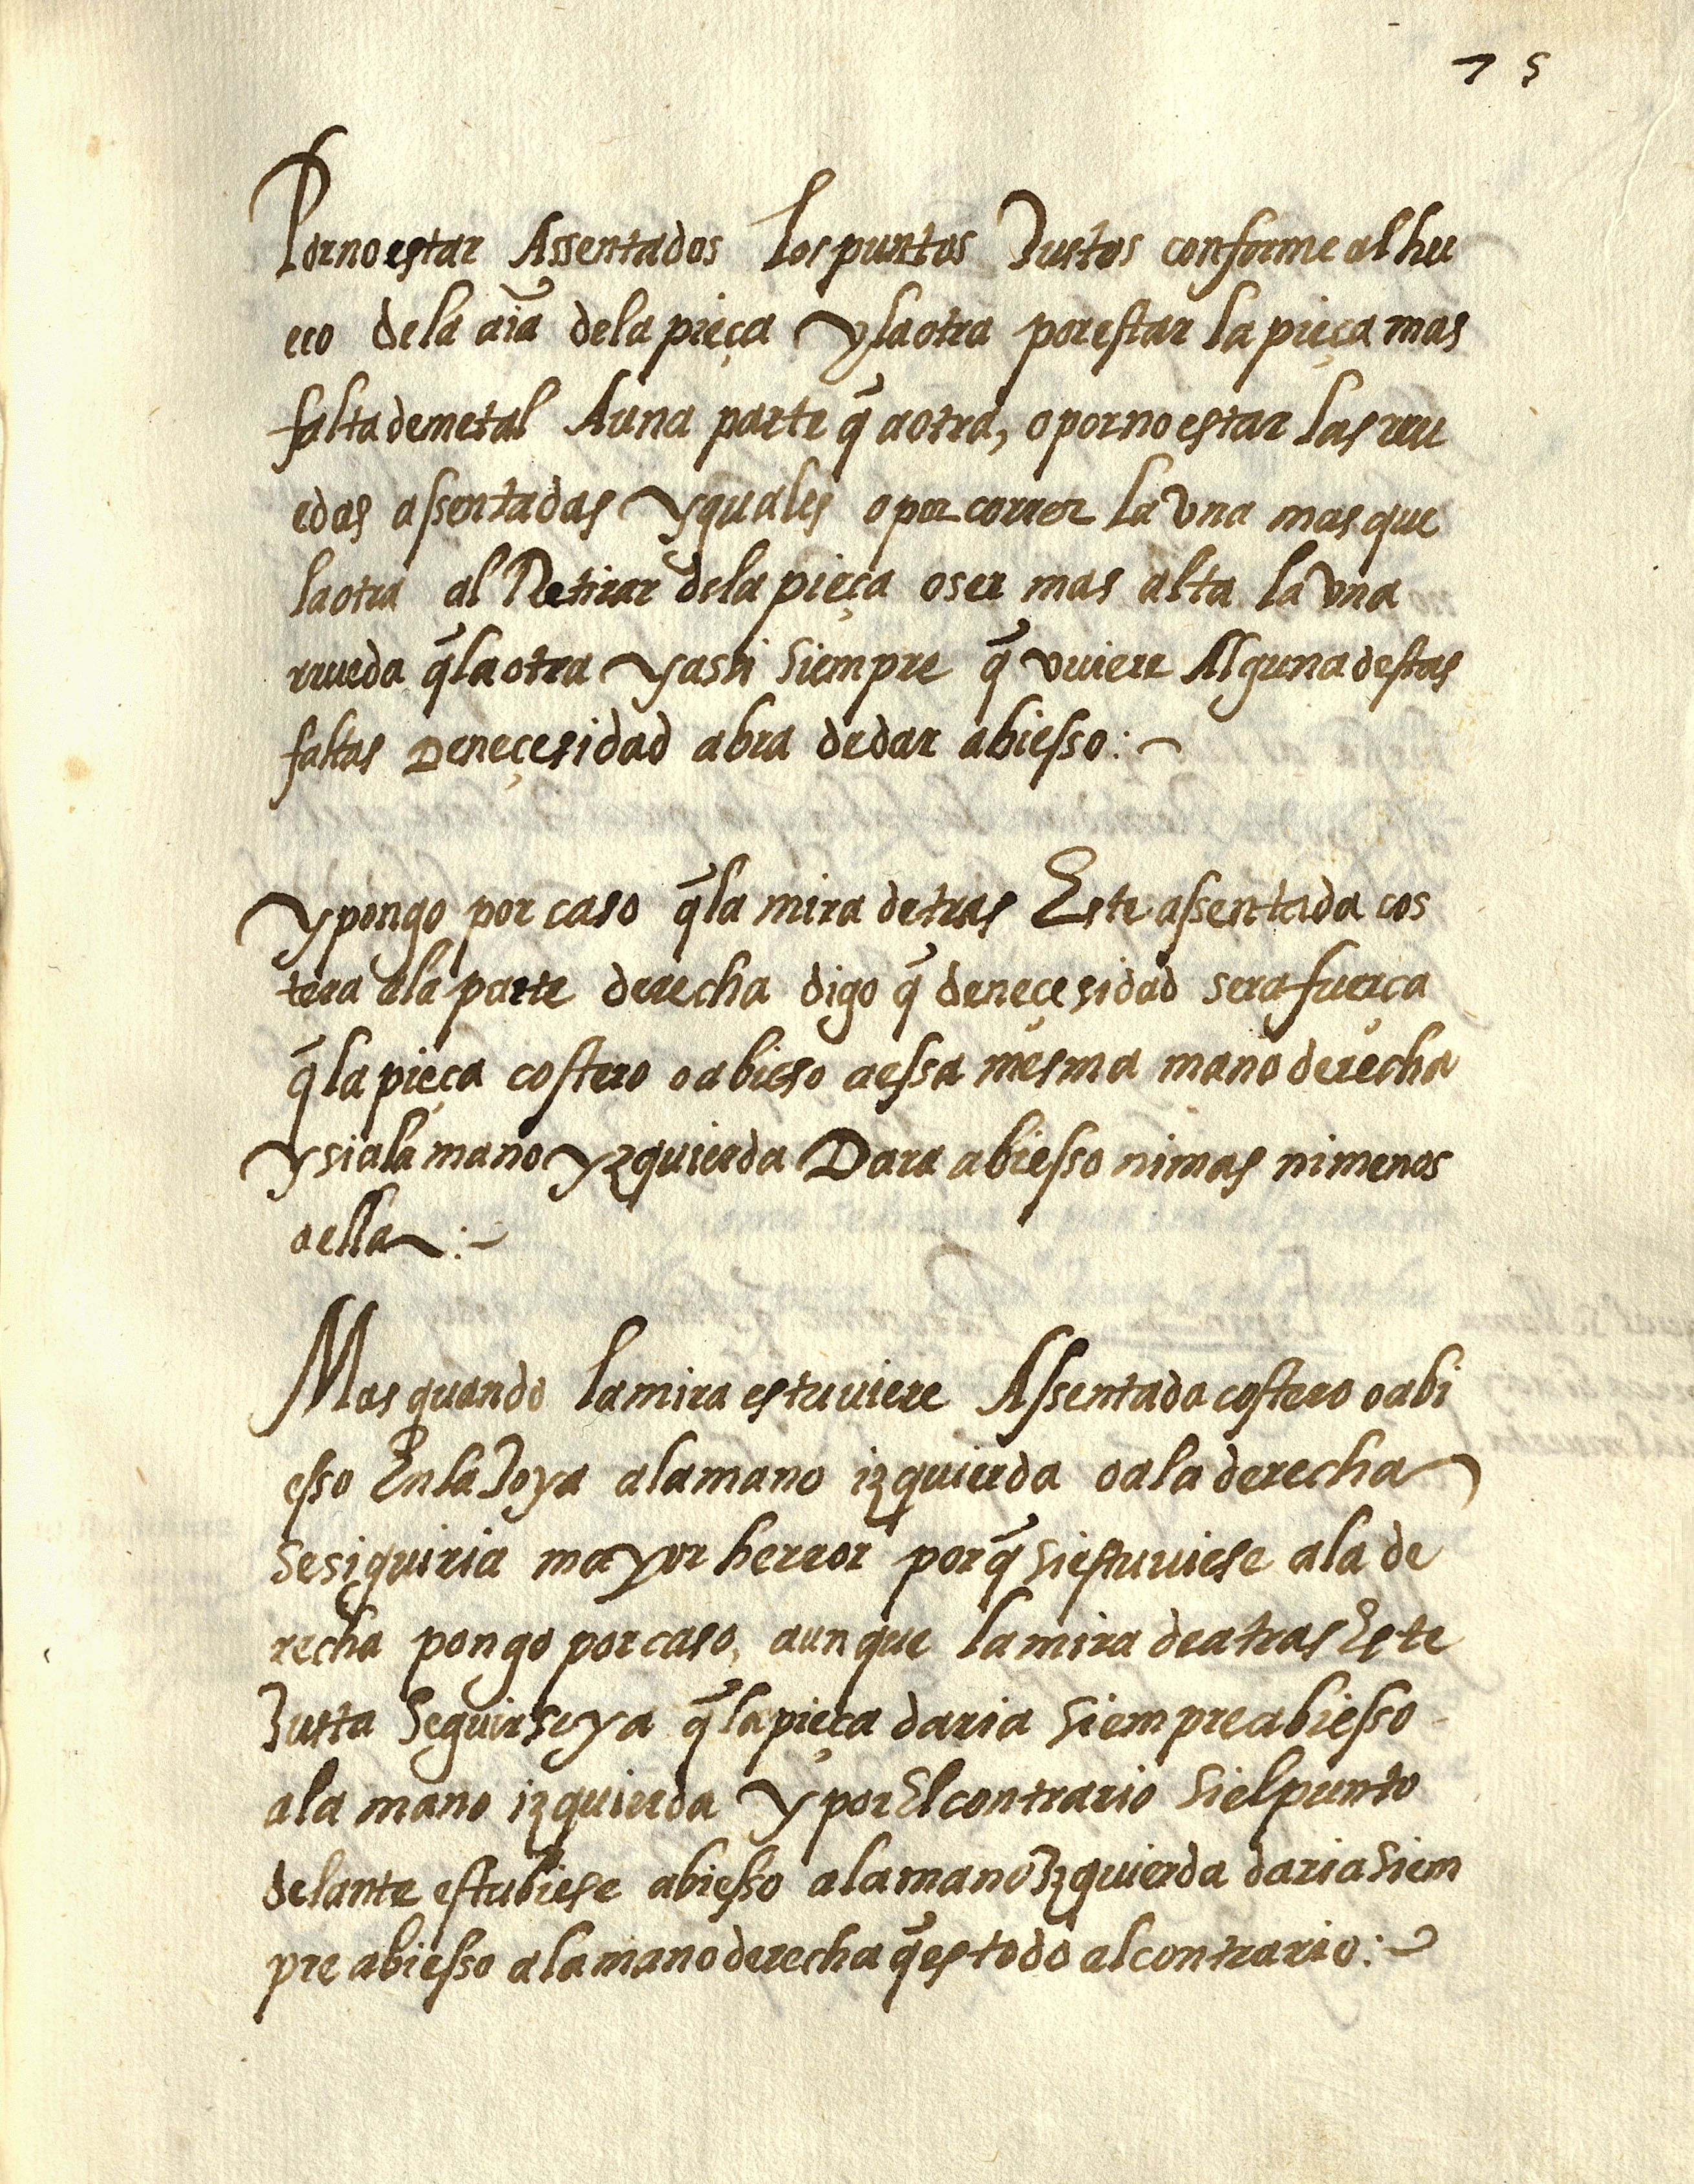 75
Por no estar Assentados los puntos Justos conforme al hu
eco de la aĩa de la pieça y la otra por estar la pieça mas
falta de metal A una parte q̃ a otra, o por no estar las rru
edas assentadas ysquales o por correr la vna mas que
la otra al Retirar de la pieça o ser mas alta la vna
rrueda q̃ la otra y assi siempre q̃ vuiere Alguna destas
faltas De neçesidad abra de dar abiesso:~
y pongo por caso q̃ la mira detras Este assentada cos
tera a la parte derecha digo q̃ de neçesidad sera fuerça
q̃ la pieça costero o abieso a essa mesma mano derecha
y si a la mano yzquierda Dara abiesso ni mas ni menos
a ella:~
Mas quando la mira estuuiere Assentada costero o abi
esso En la Joya a la mano izquierda o a la derecha
se siguiria mayor herror porq̃ si estuuiese a la de
recha pongo por caso, aunque la mira de atras Este
Justa Seguirseya q̃ la pieça daria siempre abiesso
a la mano izquierda y por El contrario si el punto
delante estubiese abiesso a la mano Izquierda daria siem
pre abiesso a la mano derecha q̃ es todo al contrario:~